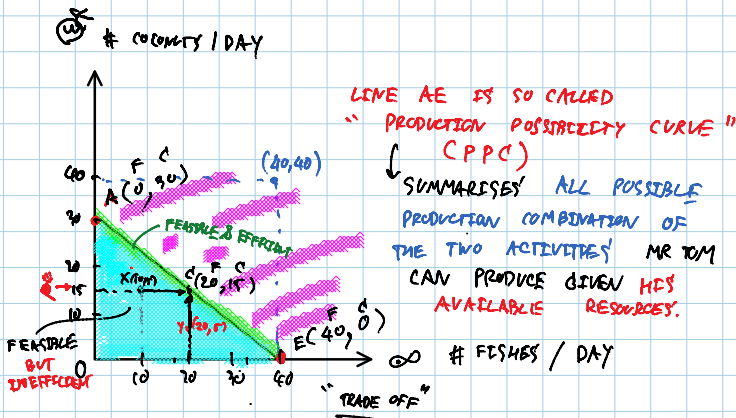 # COCONUTS / DAY
LINE AE IS SO CALLED
" PRODUCTION POSSIBILITY CURVE "
(PPC)
SUMMARISES ALL POSSIBLE
PRODUCTION COMBINATION OF
THE TWO ACTIVITIES MR TOM
CAN PRODUCE GIVEN HIS
AVAILABLE RESOURCES.
40
F C
A (0, 30)
(40,40)
30
FEASIBLE & EFFICIENT
20
F C
C (20, 15)
15
10
Y (20, 5)
F C
E (40, 0)
FEASIBLE
BUT
INEFFICIENT
0
10
20
30
40
# FISHES / DAY
" TRADE OFF "